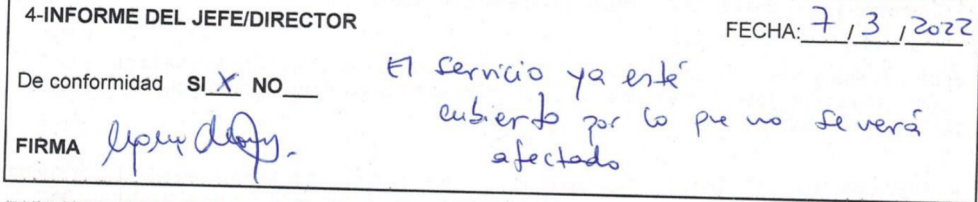 4-INFORME DEL JEFE/DIRECTOR
FECHA: 7 / 3 / 2022
De conformidad SI X NO___
El servicio ya esté
cubierto por lo que no se verá
afectado
FIRMA